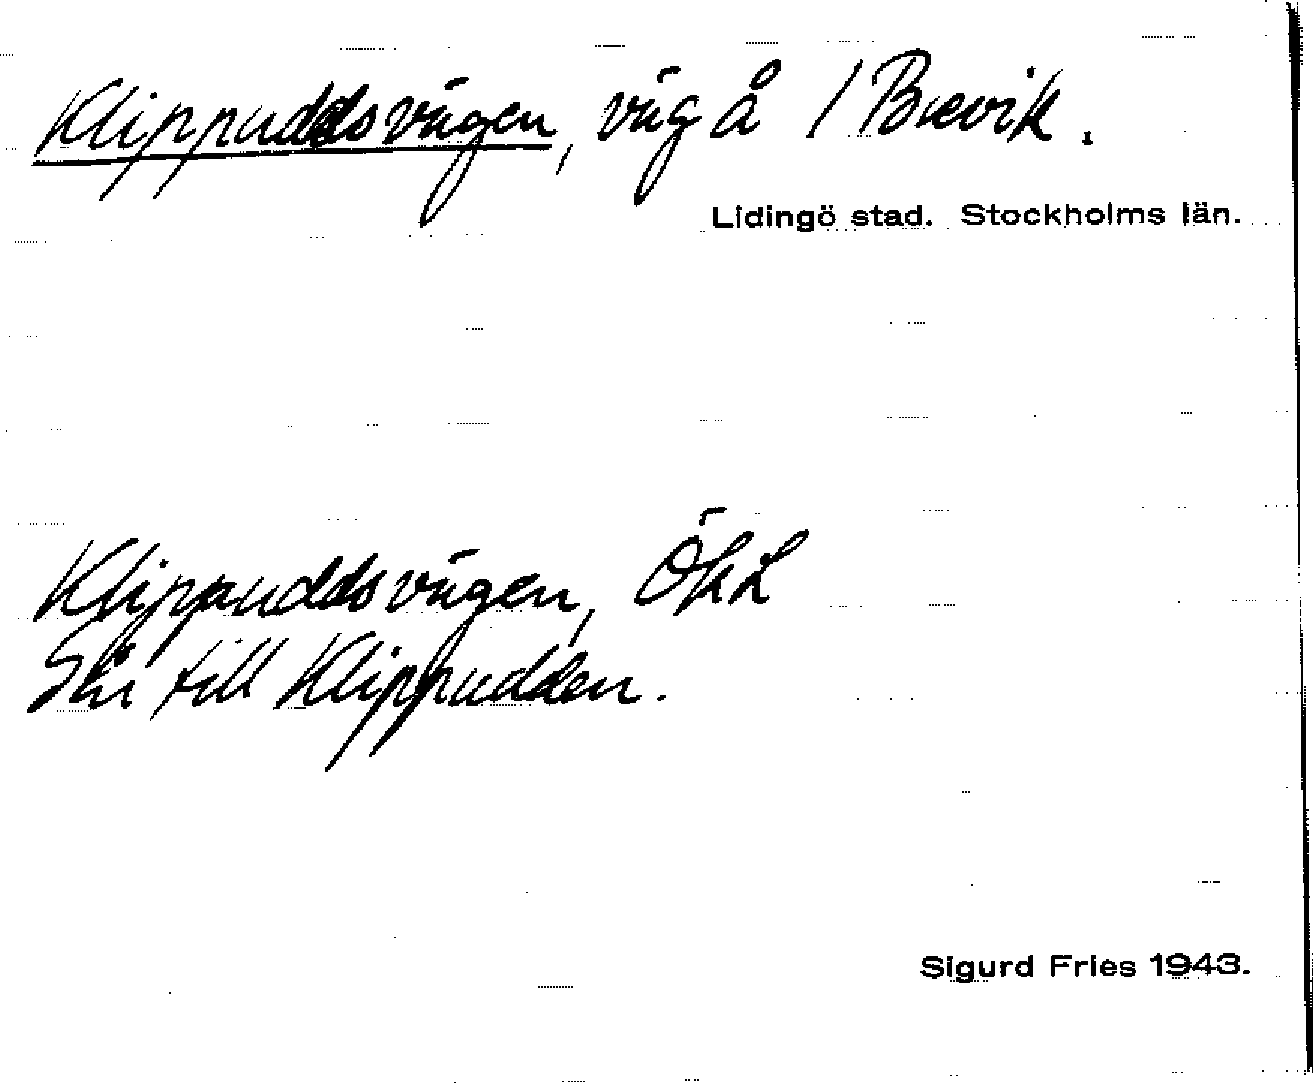 Klippuddsvägen, väg å 1 Brevik.
Lidingö stad. Stockholms län.
Klippuddsvägen, ÖkL
till Klippudden.
Sigurd Fries 1943.